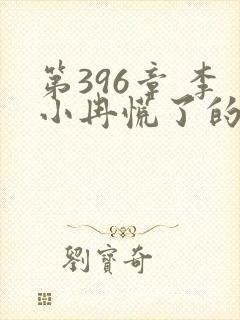 第396章 李
小冉慌了的
劉寶奇